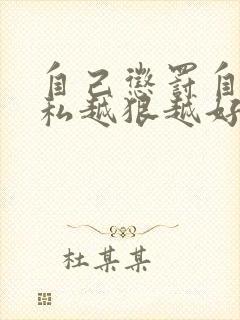 自己惩罚自
私越狠越好
杜某某